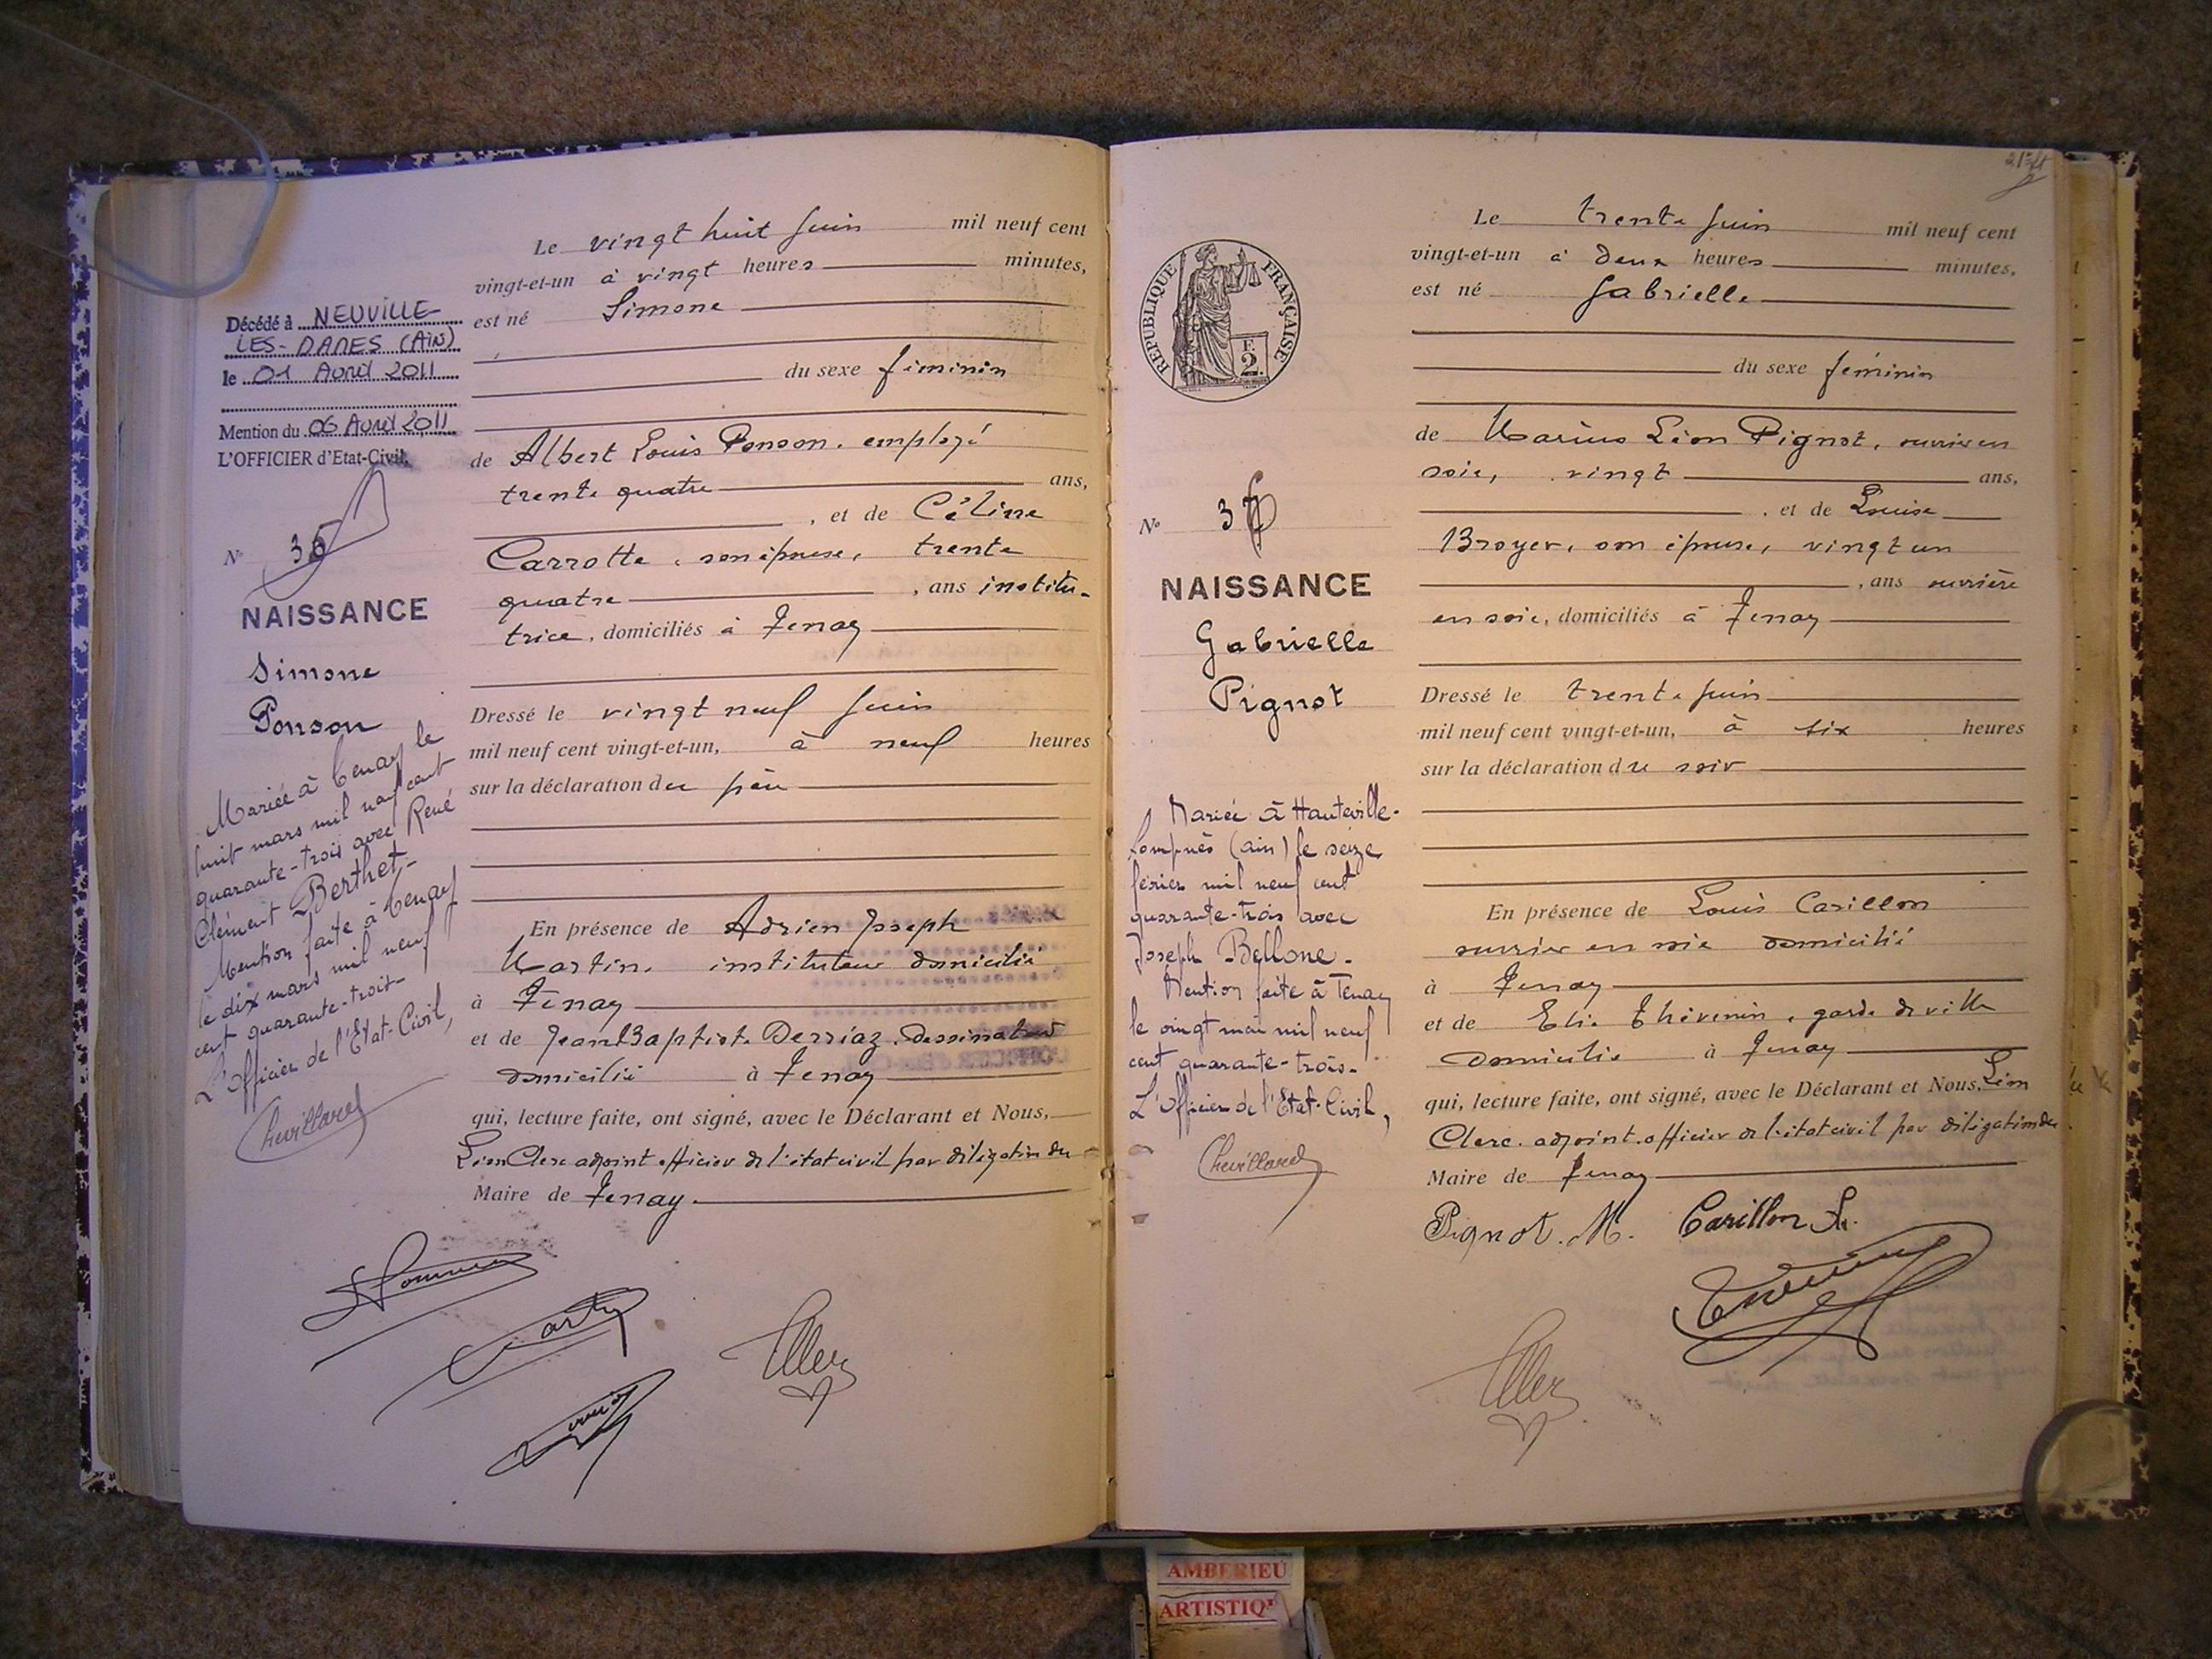 Décédé à NEUVILLE
LES-DAMES (AIN)
le 01 Avril 2011
Mention du 06 Avril 2011
L'OFFICIER d'Etat-Civil,
N° 36
NAISSANCE
Simone
Ponson
Mariée à Tenay le
huit mars mil neuf cent
quarante-trois avec René
Clément Berthet-
Mention faite à Tenay
le dix mars mil neuf
cent quarante-trois-
L'Officier de l'Etat-Civil,
Chevillard
Le vingt huit juin mil neuf cent
vingt-et-un à vingt heures minutes,
est né Simone
du sexe féminin
de Albert Louis Ponson, employé
trente quatre ans,
, et de Céline
Carrotte, son épouse, trente
quatre , ans institu-
trice, domiciliés à Tenay
Dressé le vingt neuf juin
mil neuf cent vingt-et-un, à neuf heures
sur la déclaration du père
En présence de Adrien Joseph
Martin, instituteur domicilié
à Tenay
et de Jean Baptiste Derriaz, dessinateur
domicilié à Tenay
qui, lecture faite, ont signé, avec le Déclarant et Nous,
Léon Clerc adjoint officier de l'état civil par délégation du
Maire de Tenay.
RÉPUBLIQUE FRANÇAISE
F.
2.
N° 37
NAISSANCE
Gabrielle
Pignot
Mariée à Hauteville-
Lompnès (ain) le seize
février mil neuf cent
quarante-trois avec
Joseph Bellone-
Mention faite à Tenay
le vingt mai mil neuf
cent quarante-trois-
L'Officier de l'Etat-Civil,
Chevillard
Le trente juin mil neuf cent
vingt-et-un à deux heures minutes,
est né Gabrielle
du sexe féminin
de Marius Léon Pignot, ouvrier en
soie, vingt ans,
, et de Louise
Broyer, son épouse, vingt un
, ans ouvrière
en soie, domiciliés à Tenay
Dressé le trente juin
mil neuf cent vingt-et-un, à six heures
sur la déclaration du soir
En présence de Louis Carillon
ouvrier en soie domicilié
à Tenay
et de Elie Thévenin, garde de ville
domicilié à Tenay
qui, lecture faite, ont signé, avec le Déclarant et Nous, Léon
Clerc adjoint officier de l'état civil par délégation du
Maire de Tenay
Pignot. M. Carillon L.
AMBERIEU
ARTISTIQ